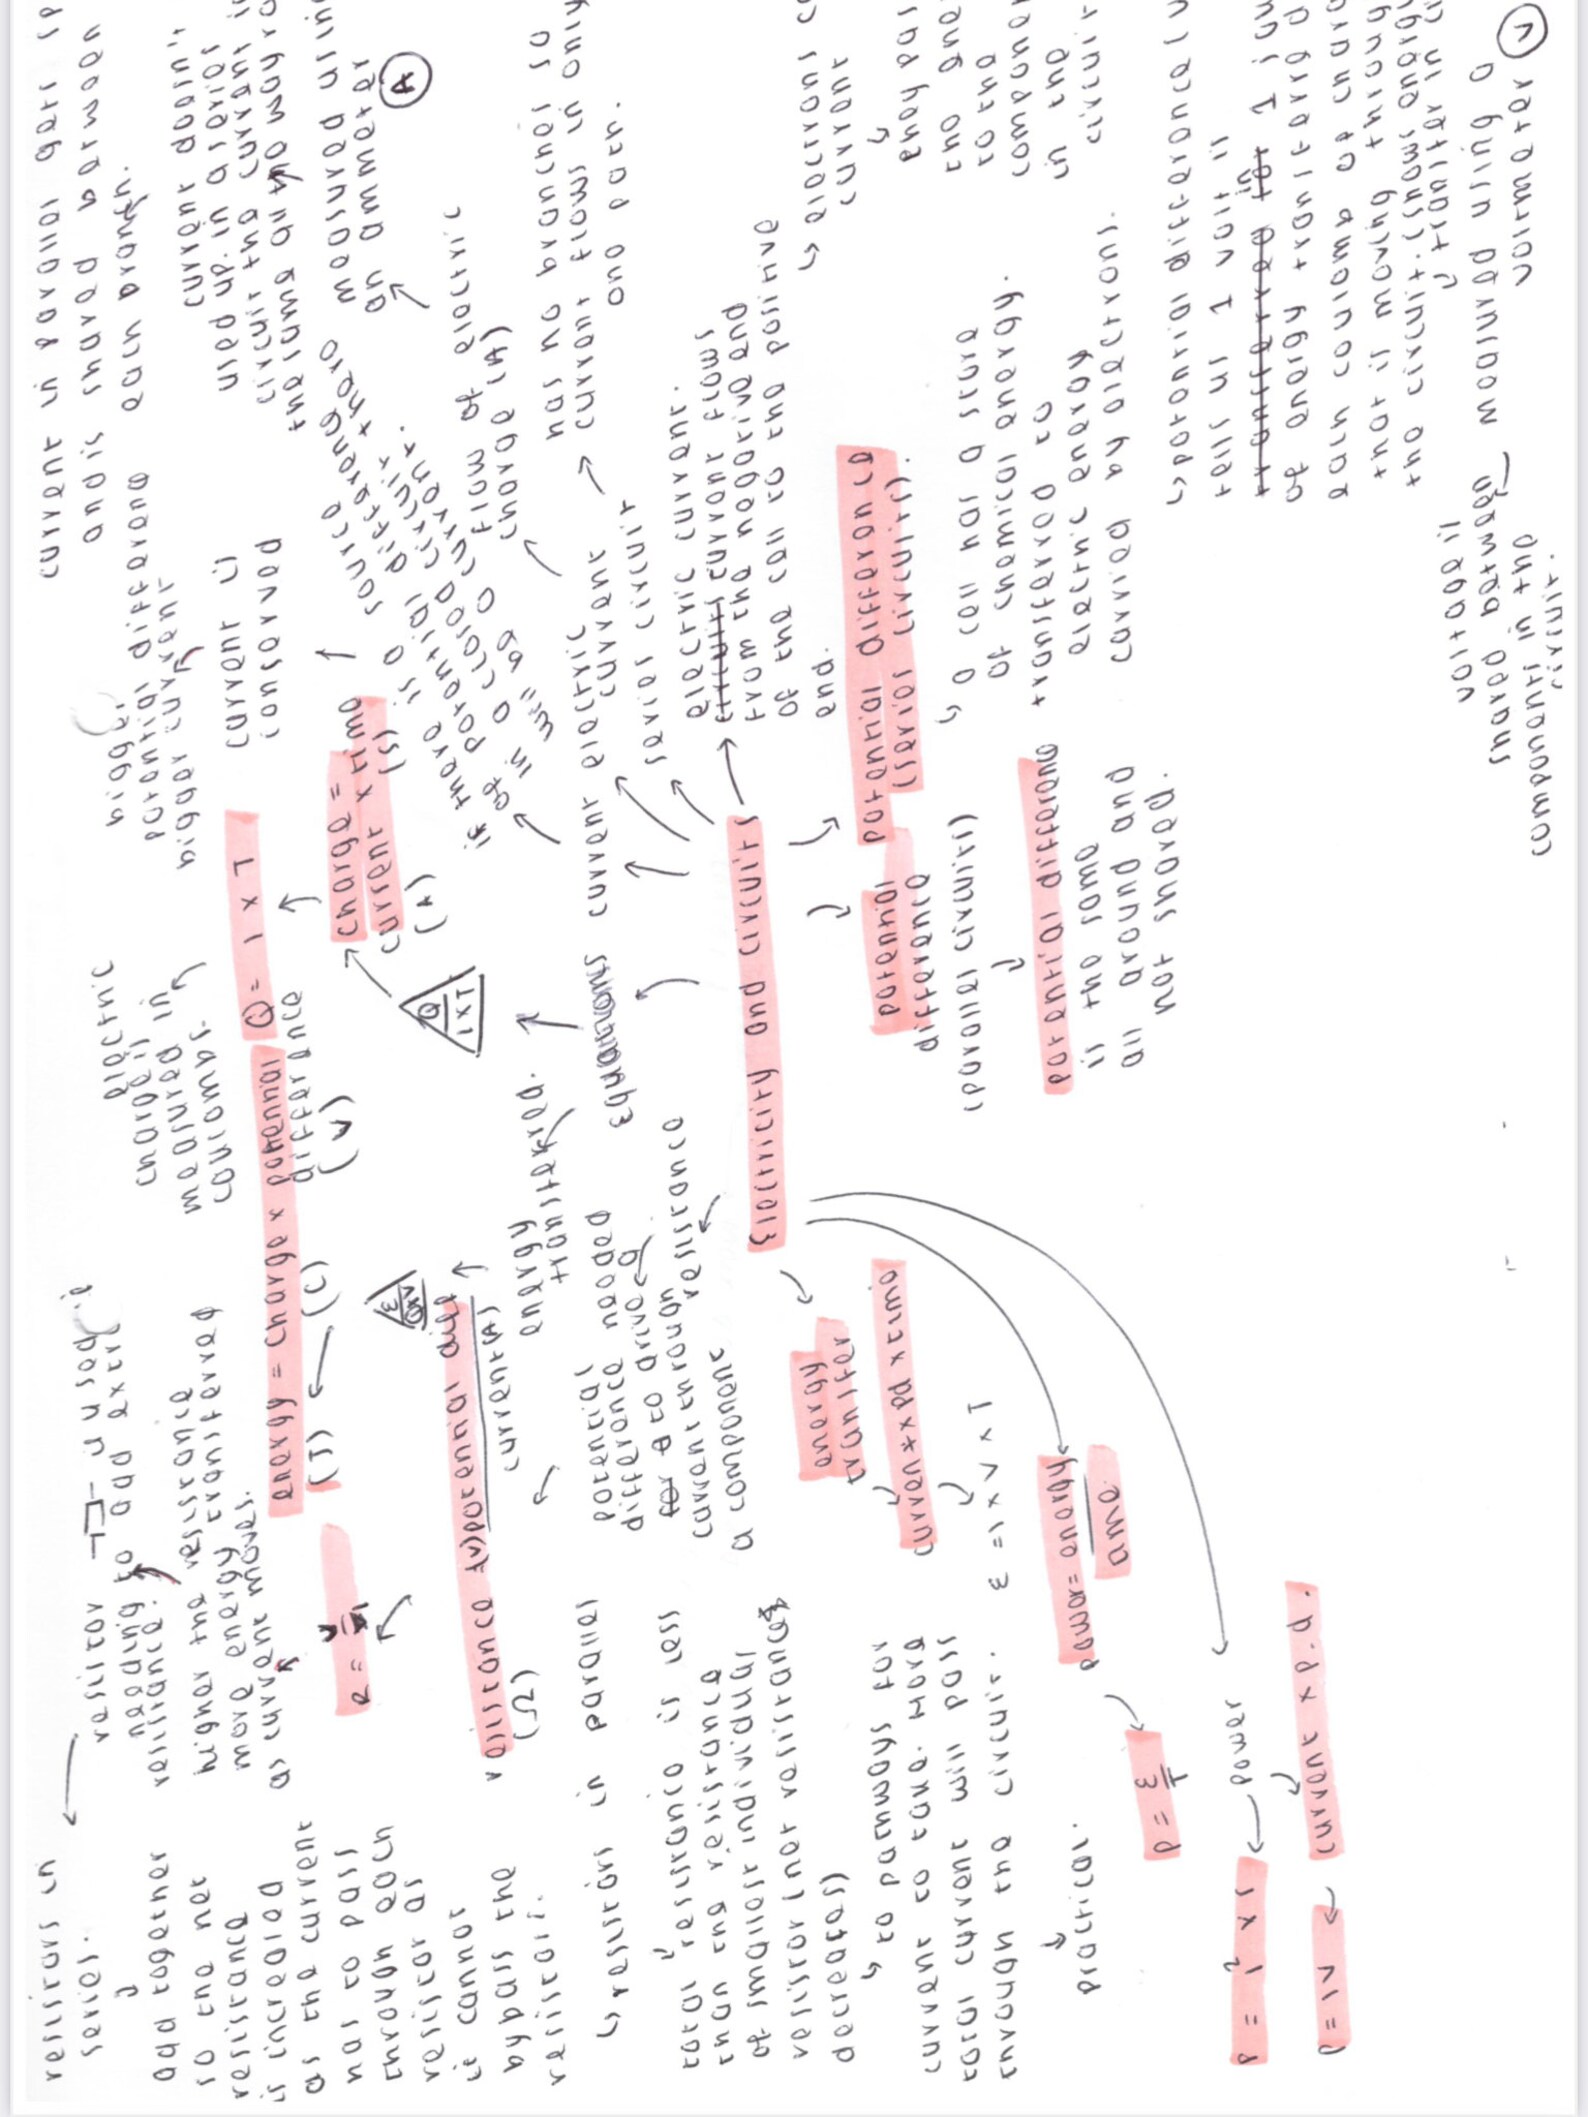 Electricity and circuits
current in parallel gets
and is shared between
each branch.
bigger
potential difference
bigger current
current is
conserved
current doesn't
used up. in a series
circuit the current is
the same all the way
measured using
an ammeter
A
flow of electric
charge (A)
if there is a source
of potential difference
in a closed circuit
will be a current.
current electric
electric
current
series circuit
has no branches so
current flows in only
one path.
electric current.
current flows
from the negative end
of the cell to the positive
end.
electrons
current
they pass
the
to the
in the
circuit
potential difference
(series circuits).
a cell has a store
of chemical energy.
transferred to
electric energy
carried by electrons.
potential difference
tells us 1 volt is
in 1
of energy transferred
each coulomb of charge
that is moving through
the circuit. (shows energy
transfer in
measured using a
voltmeter
V
voltage is
shared between
components in the
circuit.
potential
difference
(parallel circuits)
potential difference
is the same
all around and
not shared.
Equations
Q
I x T
charge =
current x time
(A) (s)
Q = I x T
electric
charge is
measured in
coulombs.
energy = charge x potential
difference
(J) (C) (V)
E
QxV
energy
transferred.
resistance
potential
difference needed
to drive a
current through
a component
resistance = (V) potential diff
current (A)
(Ω)
R = V
I
resistor
used
to add extra
resistance.
higher the resistance
more energy transferred
as current moves.
resistors in
series.
add together
so the net
resistance
is increased
as the current
has to pass
through each
resistor as
it cannot
bypass the
resistor.
resistors in parallel
total resistance is less
than the resistance
of smallest individual
resistor (not resistances
decreases)
pathways for
current to take. more
total current will pass
through the circuit.
practical.
energy
transfer
current x pd x time
E = I x V x T
power = energy
time
P = E
T
power
current x p.d.
P = I² x
P = IV